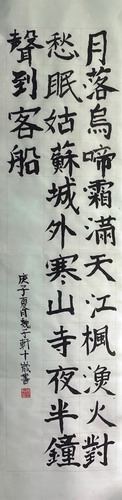 月落烏啼霜滿天江楓漁火對
愁眠姑蘇城外寒山寺夜半鐘
聲到客船
庚子夏月魏子軒十歲書